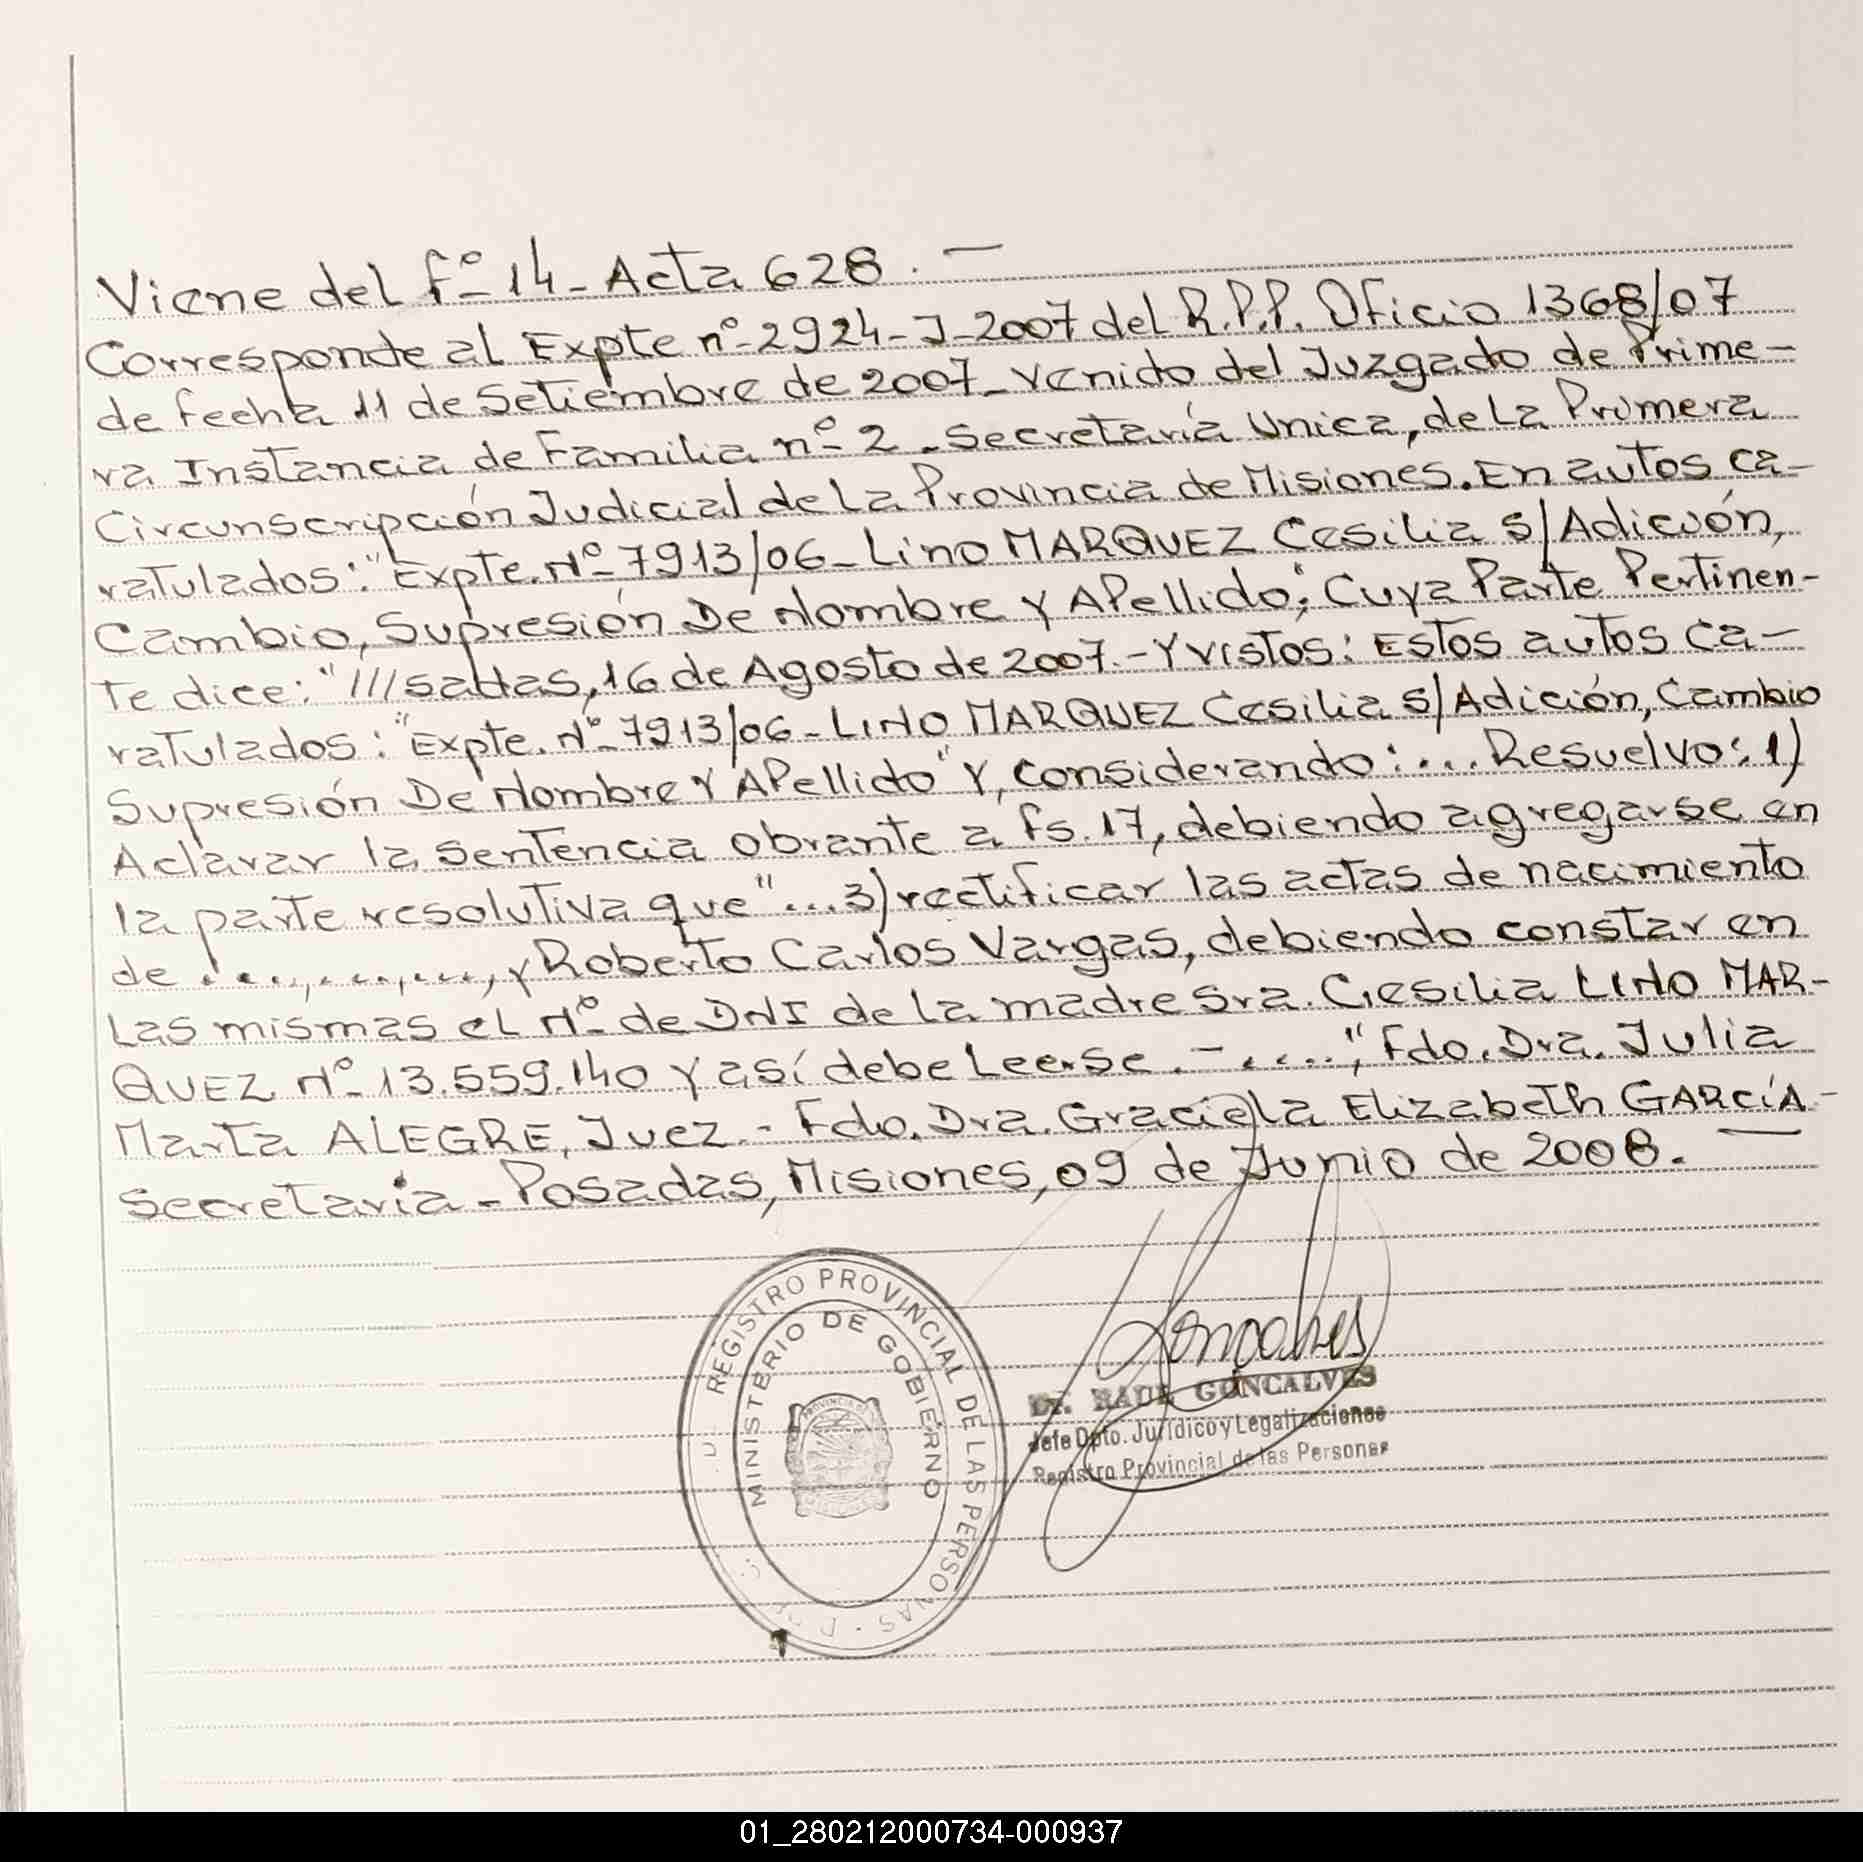 Viene del fº 14 - Acta 628. —
Corresponde al Expte nº 2924-J-2007 del R.P.P. Oficio 1368/07
de fecha 11 de Setiembre de 2007_ venido del Juzgado de Prime-
ra Instancia de Familia nº 2 - Secretaría Unica, de La Primera
Circunscripción Judicial de La Provincia de Misiones. En autos ca-
ratulados: "Expte. Nº 7913/06 - Lino MARQUEZ Cesilia S/ Adición,
Cambio, Supresión De Nombre Y APellido"; Cuya Parte Pertinen-
te dice: "///sadas, 16 de Agosto de 2007. - Y VISTOS: Estos autos ca-
ratulados: "Expte. Nº 7913/06 - LINO MARQUEZ Cesilia S/ Adición, Cambio
Supresión De Nombre Y APellido" Y, considerando: ... Resuelvo: 1)
Aclarar la sentencia obrante a fs. 17, debiendo agregarse en
la parte resolutiva que "... 3) rectificar las actas de nacimiento
de ....,....,...., y Roberto Carlos Vargas, debiendo constar en
Las mismas el Nº de DNI de la madre Sra. Cesilia LINO MAR-
QUEZ Nº 13.559.140 y así debe Leerse. - ....", Fdo. Dra. Julia
Marta ALEGRE, Juez. - Fdo. Dra. Graciela Elizabeth GARCÍA -
Secretaria - Posadas, Misiones, 09 de Junio de 2008. —
REGISTRO PROVINCIAL DE LAS PERSONAS
MINISTERIO DE GOBIERNO
Goncalves
Dr. RAUL GONCALVES
Jefe Dpto. Jurídico y Legalizaciones
Registro Provincial de las Personas
01_280212000734-000937